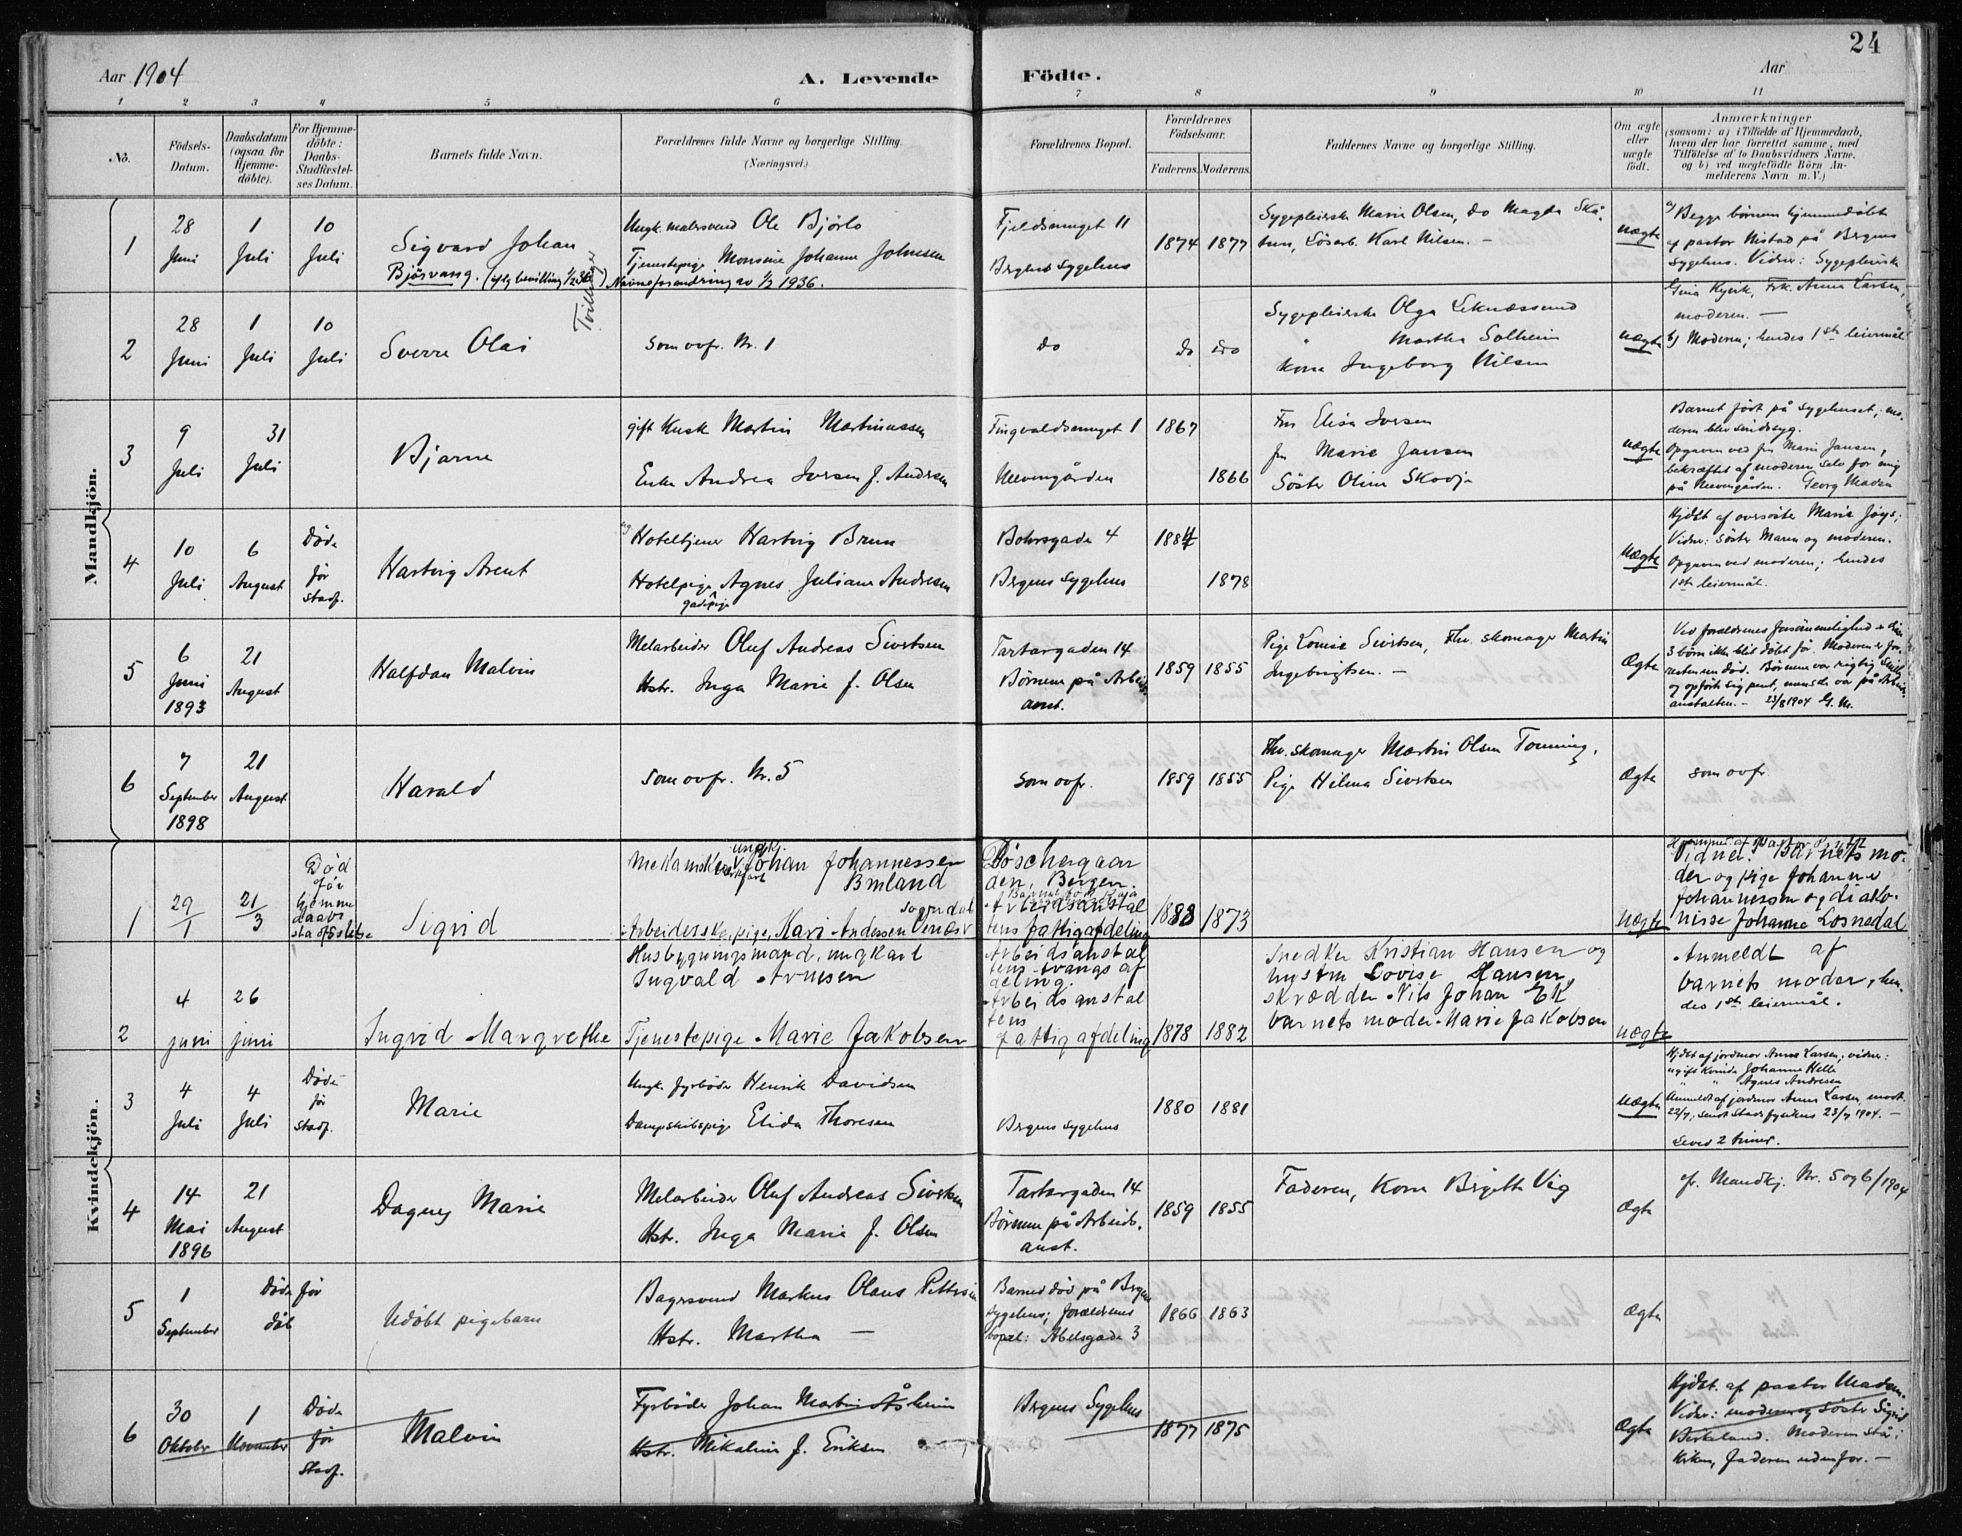 24
Aar 1904
A. Levende Födte.
Aar
1 2 3 4 5 6 7 8 9 10 11
No.
Födsels-Datum.
Daabsdatum (ogsaa for Hjemme-döbte).
For Hjemme-döbte: Daabs-Stadfæstel-ses Datum.
Barnets fulde Navn.
Forældrenes fulde Navne og borgerlige Stilling.
(Næringsvei.)
Forældrenes Bopæl.
Forældrenes Födselsaar.
Faderens. Moderens.
Faddernes Navne og borgerlige Stilling.
Om ægte eller uægte födt.
Anmærkninger
(saasom: a) i Tilfælde af Hjemmedaab,
hvem der har forrettet samme, med
Tilföielse af to Daabsvidners Navne,
og b) ved uægtefödte Börn An-
melderens Navn m. V.)
Mandkjön.
1
28 Juni
1 Juli
10 Juli
Sigvard Johan
Bjösvang. (iflg bevilling 1/2 36) Navneforandring av 1/2 1936.
Tvillinger
Ungk. malersvend Ole Bjørlo
Tjenestepige Monsine Johanne Johnsen
Fjeldsmuget 11
Bergens Sygehus
1874 1877
Sygepleierske Marie Olsen, do Magda
Løsarb. Karl Nilsen. —
uægte
a) Begge børnene hjemmedøbt
af pastor Nistad på Bergens
Sygehus. Vidner: Sygepleierske
Frk. Anna Larsen,
moderen. —
2
28 Juni
1 Juli
10 Juli
Sverre Olai
som ovfr. Nr. 1
do
do do
Sygepleierske Olga Leknæssund
" Martha Solheim
Kone Ingeborg Nilsen
uægte
b) Moderen; hendes 1ste leiermål
3
9 Juli
31 Juli
Bjarne
gift Kusk Martin Martinussen
Enke Andrea Iversen f. Andersen
Tingvaldsmuget 1
Neevengården
1867
1866
Fru Elisa Iversen
fru Marie Jansen
Søster Oline Skovje
uægte
Barnet født på Sygehuset; mo-
deren blev sindssyg.
Opgaven ved fru Marie Jansen,
bekræftet af moderen selv for mig
på Neevengården. Georg Madsen
4
10 Juli
6 August
Døde før stadf.
Hartvig Arent
Hoteltjener Hartvig Brun
Hotelpige Agnes Juliane Andresen
gadepige
Bohrsgade 4
Bergens Sygehus
1884
1878
uægte
Hjdbt af oversøster Marie Joys;
Vidner: søster Maren og moderen.
Opgaven ved moderen; hendes
1ste leiermål.
5
6 Juni 1893
21 August
Halfdan Malvin
Melarbeider Oluf Andreas Sivertsen
Hstr. Inga Marie f. Olsen
Tartargaden 14
Børnene på Arbeids
anst.
1859 1855
Pige Lovise Sivertsen, Fhv. skomager Martin
Ingebrigtsen. —
Ægte
Ved forældrenes forsømmelighed er disse
3 børn ikke blit døbt før. Moderen er for-
resten nu død. Børnene var rigtig snille
og opførte sig pent, mens de var på Arbeids
anstalten. — 23/8 1904 G. M.
6
7 September 1898
21 August
Harald
som ovfr. Nr. 5
som ovfr.
1859 1855
Fhv. skomager Martin Olsen Tonning,
Pige Hilma Sivertsen
Ægte
som ovfr
Kvindekjön.
1
29/1
21/3
Död før hjemme daabs stadfæstelse
Sigrid
ungk.
Johan Johannessen
Sogndal
Arbeiderske, pige, Kari Andersen
Döschergaar
den, Bergen.
Arbeidsanstal
tens fattigafdeling
1883 1873
uægte
Vidner: Barnets mo-
der og pige Johanne
Johannessen og diako-
nisse Johanne Losnedal
2
4 juni
26 juni
Ingrid Margrethe
Husbygningsmand, ungkarl
Ingvald Arnesen
Tjenestepige Marie Jakobsen
Arbeidsanstal
tens tvangsaf
deling.
Arbeidsanstal
tens
fattigafdeling
1878 1882
Snedker Kristian Hansen og
hustru Lovise Hansen,
skrædder Nils Johan Ek
barnets moder Marie Jakobsen
uægte
Anmeldt af
barnets moder, hen-
des 1ste leiermål.
3
4 Juli
4 Juli
Døde før stadf.
Marie
Ungk. fyrbøder Henrik Davidsen
Dampskibspige Elida Thoresen
Bergens Sygehus
1880 1881
uægte
Hjdbt af jordmor Anna Larsen; vidner:
ugift kvinde Johanne Helle
" " Agnes Andresen
Anmeldt af jordmor Anna Larsen, modt.
22/7, sendt Stadsfysikus 23/7 1904. —
Leved 2 timer.
4
14 Mai 1896
21 August
Dagny Marie
Melarbeider Oluf Andreas Sivertsen
Hstr. Inga Marie f. Olsen
Tartargaden 14
Børnene på Arbeids.
anst.
1859 1855
Faderen, Kone Birgitte Vig
Ægte
cfr. Mandkj. Nr. 5 og 6/1904
5
1 September
Døde før dåb
Udøbt pigebarn
Bagersvend Markus Olaus Pettersen
Hstr. Martha —
Barnet død på Bergens
Sygehus; forældrenes
bopæl: Abelsgade 3
1866 1863
Ægte
6
30 Oktober
1 November
Døde før stadf.
Malvin
Fyrbøder Johan Martin Åsheim
Hstr. Mikaline f. Eriksen
Bergens Sygehus
1877 1875
Ægte
Hjdbt. af pastor Madsen.
Vidner: moderen og søster Sigrid
Birkeland. Moderen stå i
Kirken, faderen udenfor. —